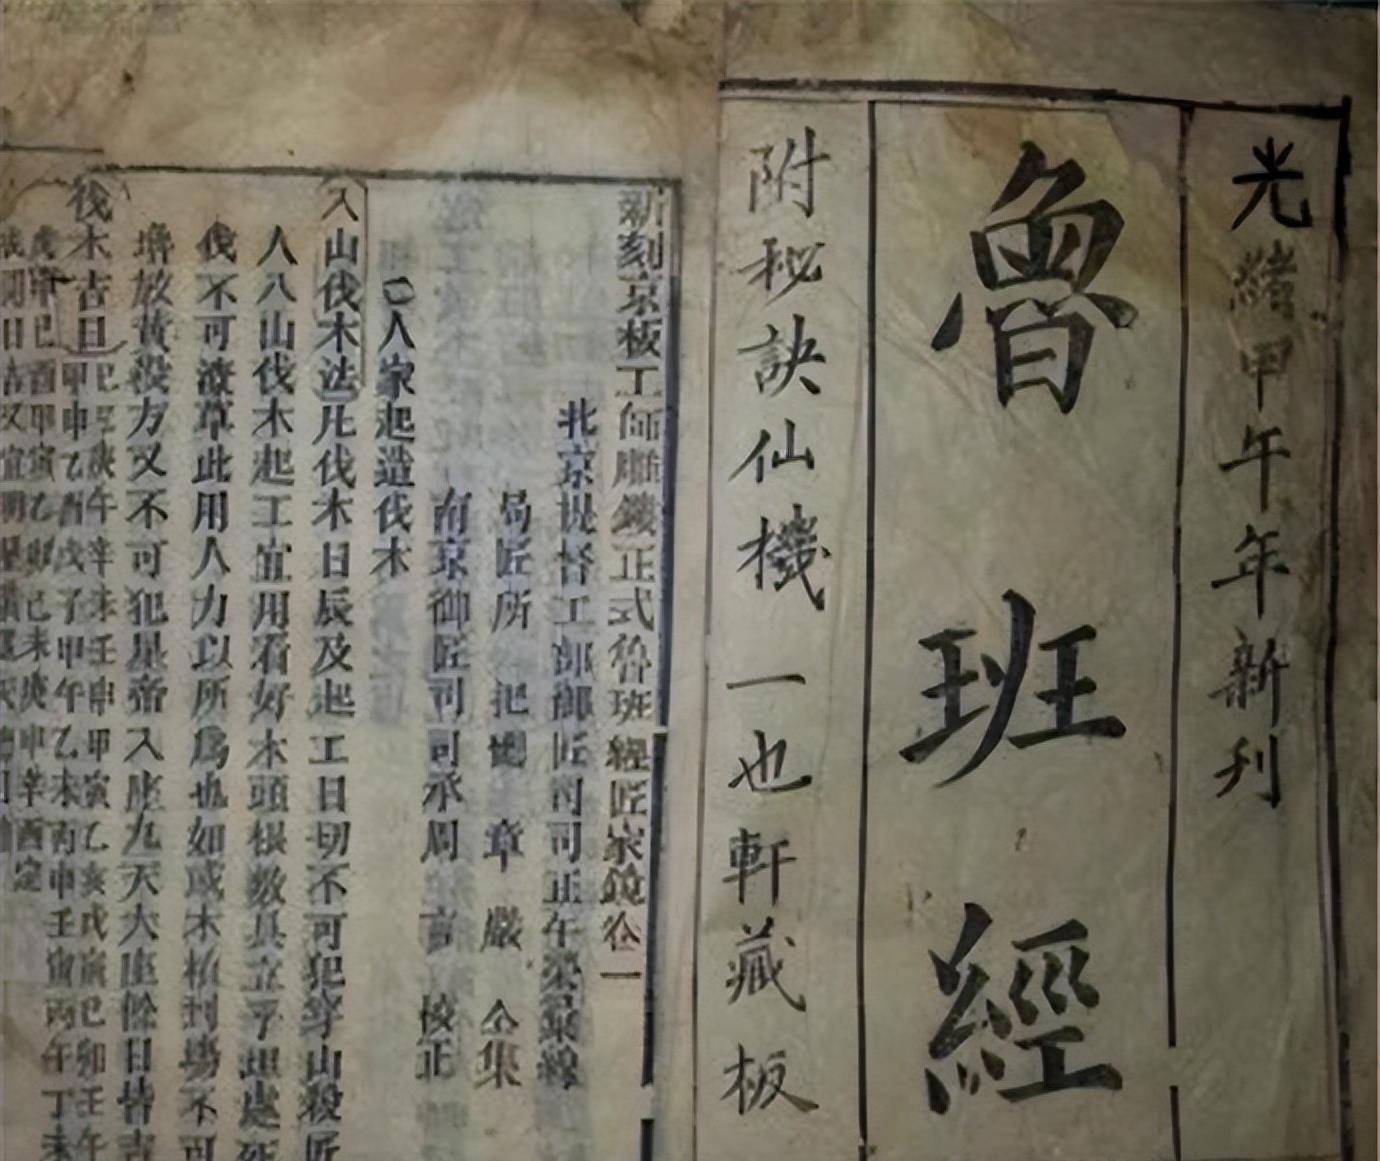 光緒甲午年新刊
魯班經
附秘訣仙機一也軒藏板
新刻京板工師雕鏤正式魯班經匠家鏡卷一
北京提督工部御匠司司正午榮彙編
局匠所把總章嚴仝集
南京御匠司司承周言校正
人家起造伐木
入山伐木法凡伐木日辰及起工日切不可犯穿山殺匠
人入山伐木起工宜用看好木頭根數具立平坦處
伐不可潦草此用人力以所為也如或木植到場不可
堆放黃殺方又不可犯皇帝八座九天大座餘日皆吉
伐木吉日己巳庚午辛未壬申甲寅乙亥戊寅己卯壬午
甲申乙酉戊子甲午乙未丙申壬寅丙午丁未
申己酉甲寅乙卯己未庚申辛酉定